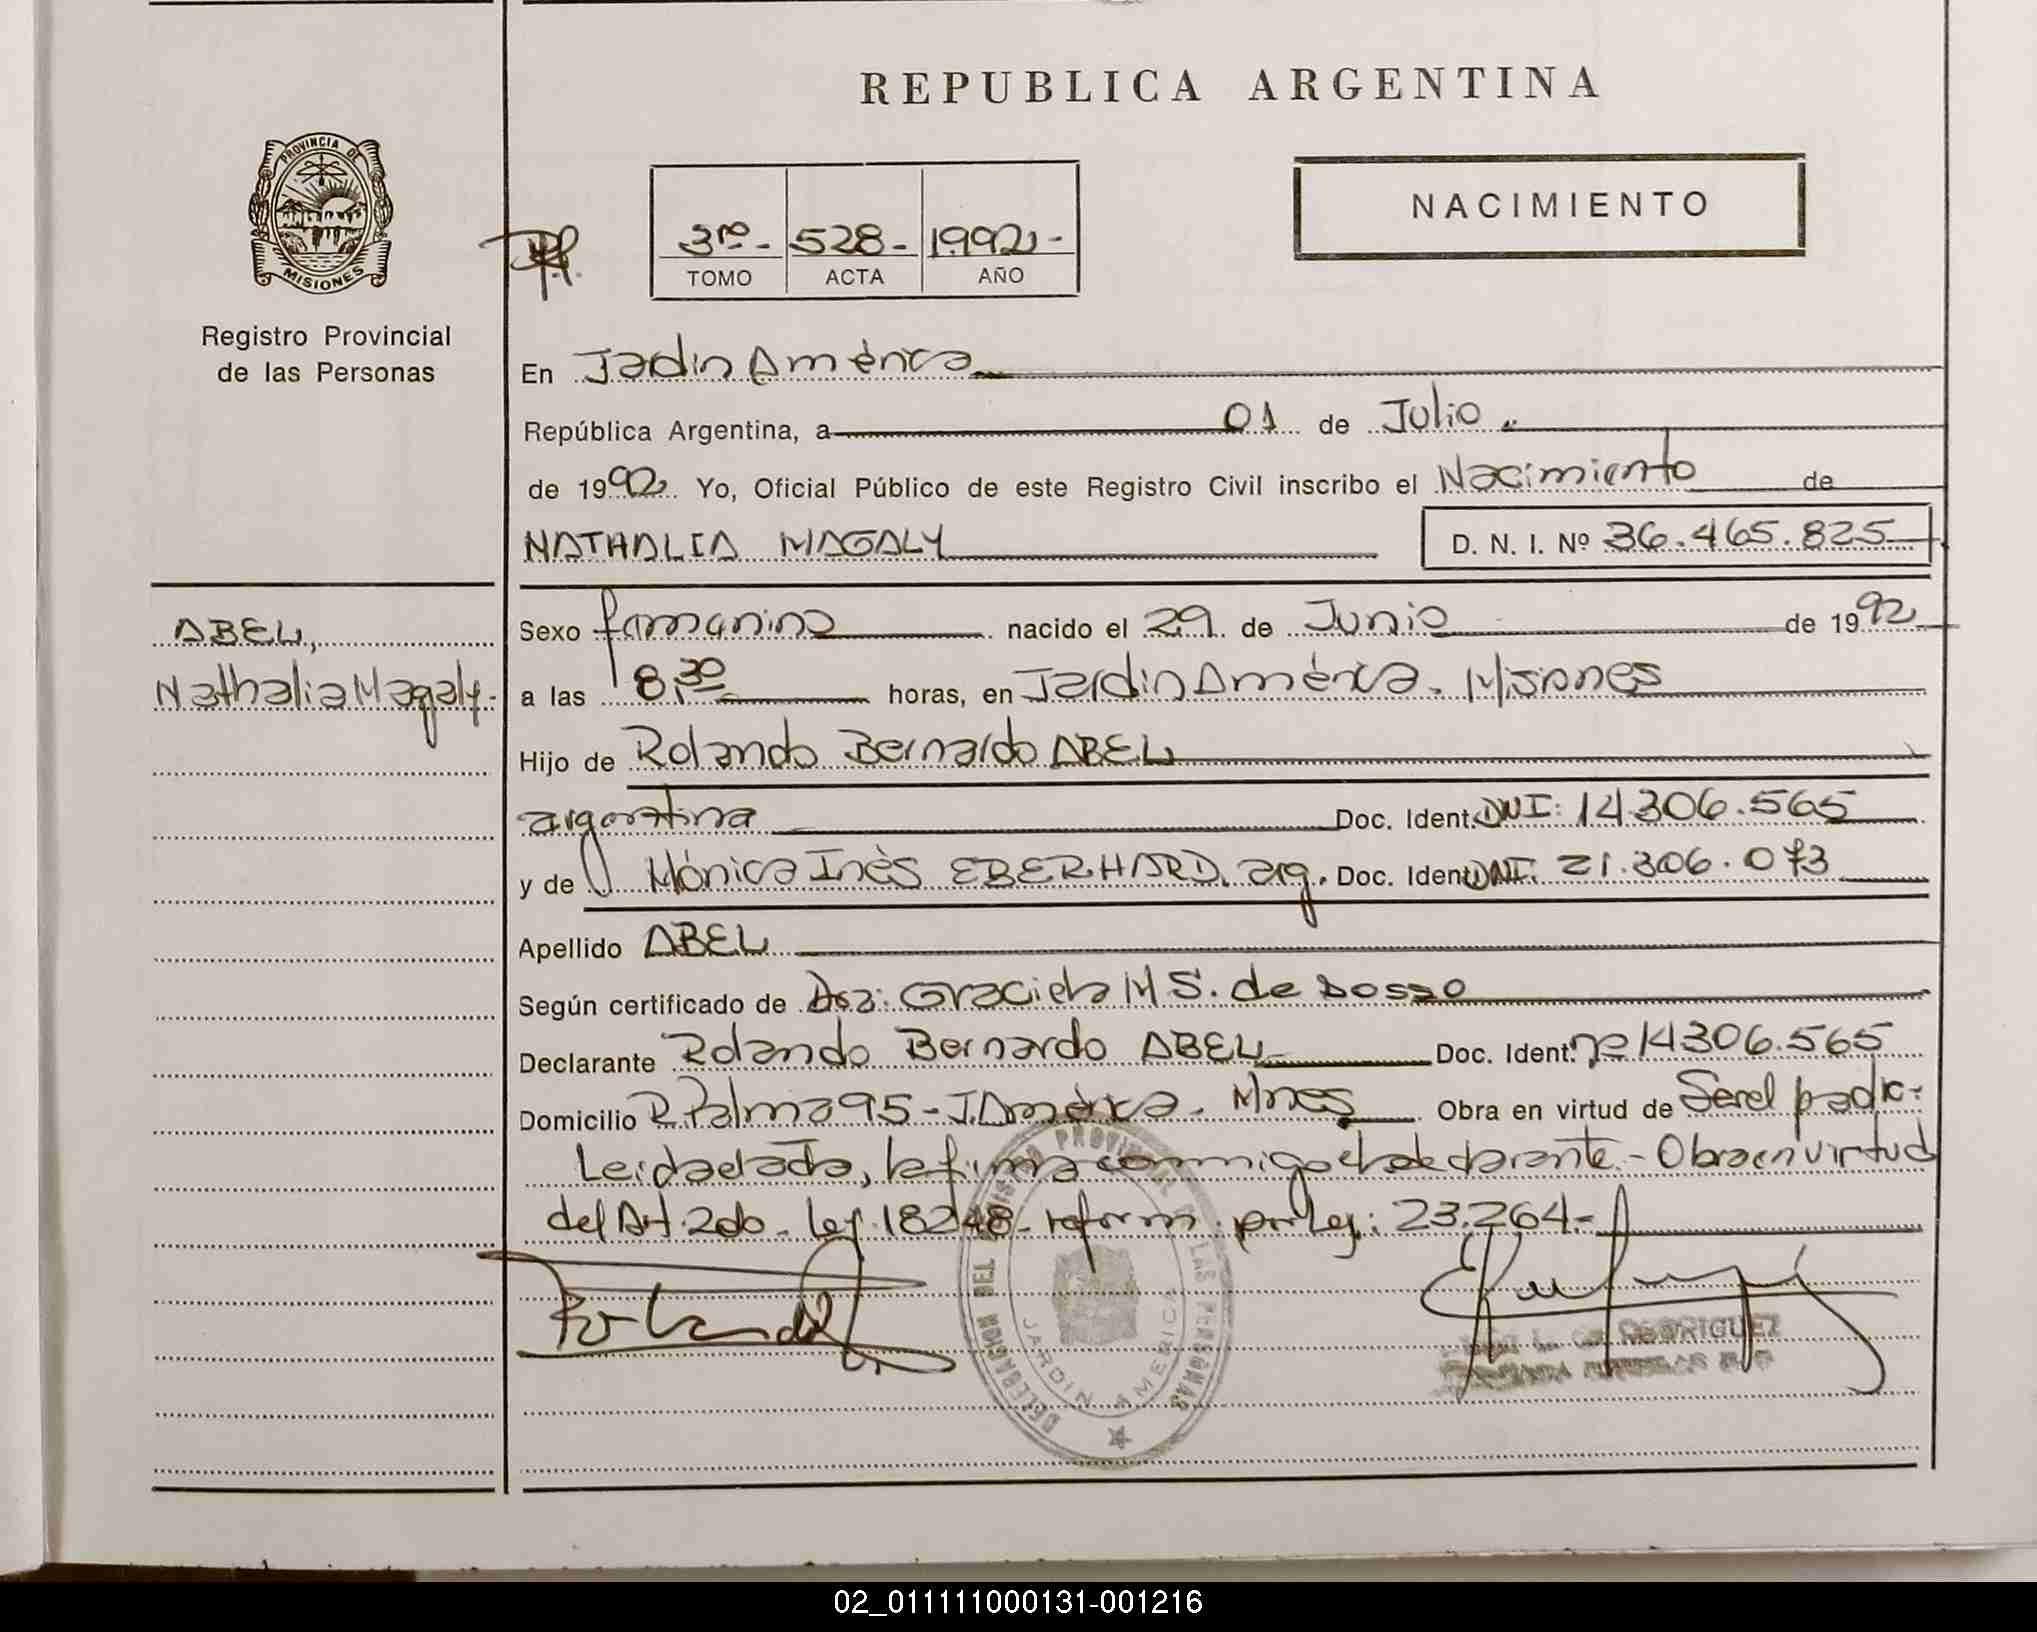 REPUBLICA ARGENTINA
PROVINCIA DE
MISIONES
Registro Provincial
de las Personas
3ro - 528 - 1992 -
TOMO ACTA AÑO
NACIMIENTO
En Jadin América
República Argentina, a 01 de Julio
de 1992 Yo, Oficial Público de este Registro Civil inscribo el Nacimiento de
NATHALIA MAGALY D. N. I. Nº 36.465.825
ABEL,
Nathalia Magaly.-
Sexo femenino nacido el 29 de Junio de 1992
a las 8,30 horas, en Jardin América. Misiones
Hijo de Rolando Bernardo ABEL
argentina Doc. Ident. DNI: 14.306.565
y de Mónica Inés EBERHARD. arg. Doc. Ident. DNI. 21.306.073
Apellido ABEL
Según certificado de Dra: Graciela M S. de Dosso
Declarante Rolando Bernardo ABEL Doc. Ident. nº 14306.565
Domicilio R. Palma 95 - J. América. Mnes Obra en virtud de Ser el padre.-
Leida el acta, la firma conmigo el declarante.- Obra en virtud
del Art. 2do. Ley. 18248 - reform. por Ley: 23.264.-
DELEGACION DEL REGISTRO PROVINCIAL DE LAS PERSONAS
JARDIN AMERICA
DE RODRIGUEZ
02_011111000131-001216